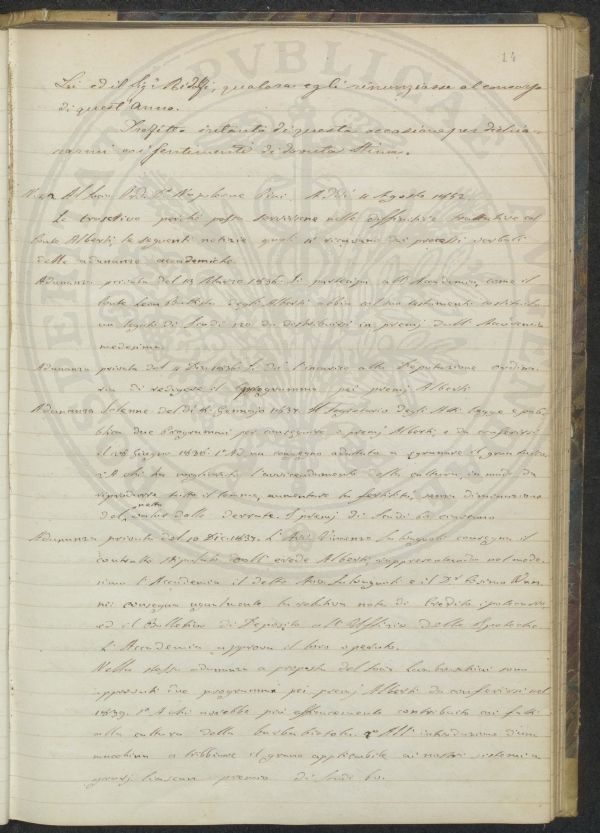 14
Lei ed il Sigr Ridolfi, qualora egli rinunziasse al concorso
di quest'Anno.
Profitto intanto di questa occasione per dichia-
rarmi coi sentimenti di dovuta Stima.
Al Napoleone Pini. Addì 4 Agosto 1862.
Le trasmetto perché possa servirsene nelle trattative col
Conte Alberti, le seguenti notizie quali si ricavano dai processi verbali
delle adunanze accademiche
Adunanza privata del 13 Marzo 1836. Si partecipa all'Accademia, come il
Conte Leon Battista degli Alberti abbia col suo testamento costituito
un legato di Scudi 120 da distribuirsi in premj dall'Accademia
medesima.
Adunanza privata del 4 1836. Si dà l'incarico alla Deputazione ordina-
ria di redigere il programma pei premj Alberti
Adunanza Solenne del dì Gennajo 1837. Il Segretario degli Atti legge e pub-
blica due Programmi per conseguire i premj Alberti da conferirsi
il Giugno 1838. 1° Ad un congegno adattato a il gran turco,
2° A chi ha migliorato l'avvicendamento della cultura, in modo da
riprodurre tutto il , aumentare la fertilità, senza diminuzione
del valor netto delle derrate. I premj di Scudi 60 ciascuno
Adunanza privata del 10 Dic. 1837. L'Avv. Vincenzo Salvagnoli consegna il
contratto stipulato coll'erede Alberti, rappresentando nel mede-
simo l'Accademia il detto Avv. Salvagnoli e il Dr Cosimo Van-
ni consegna ugualmente la relativa nota di Credito ipotecario
ed il Bullettino di Deposito all'Uffizio delle Ipoteche
L'Accademia approva il loro operato.
Nella stessa adunanza a proposta del Socio Lambruschini sono
approvati due programmi pei premj Alberti da conferirsi nel
1839. 1° A chi avrebbe più efficacemente contribuito coi fatti
alla cultura della barbabietola. 2° All' introduzione d'una
macchina a tribbiare il grano applicabile ai nostri sistemi
ciascun premio di Scudi 60.